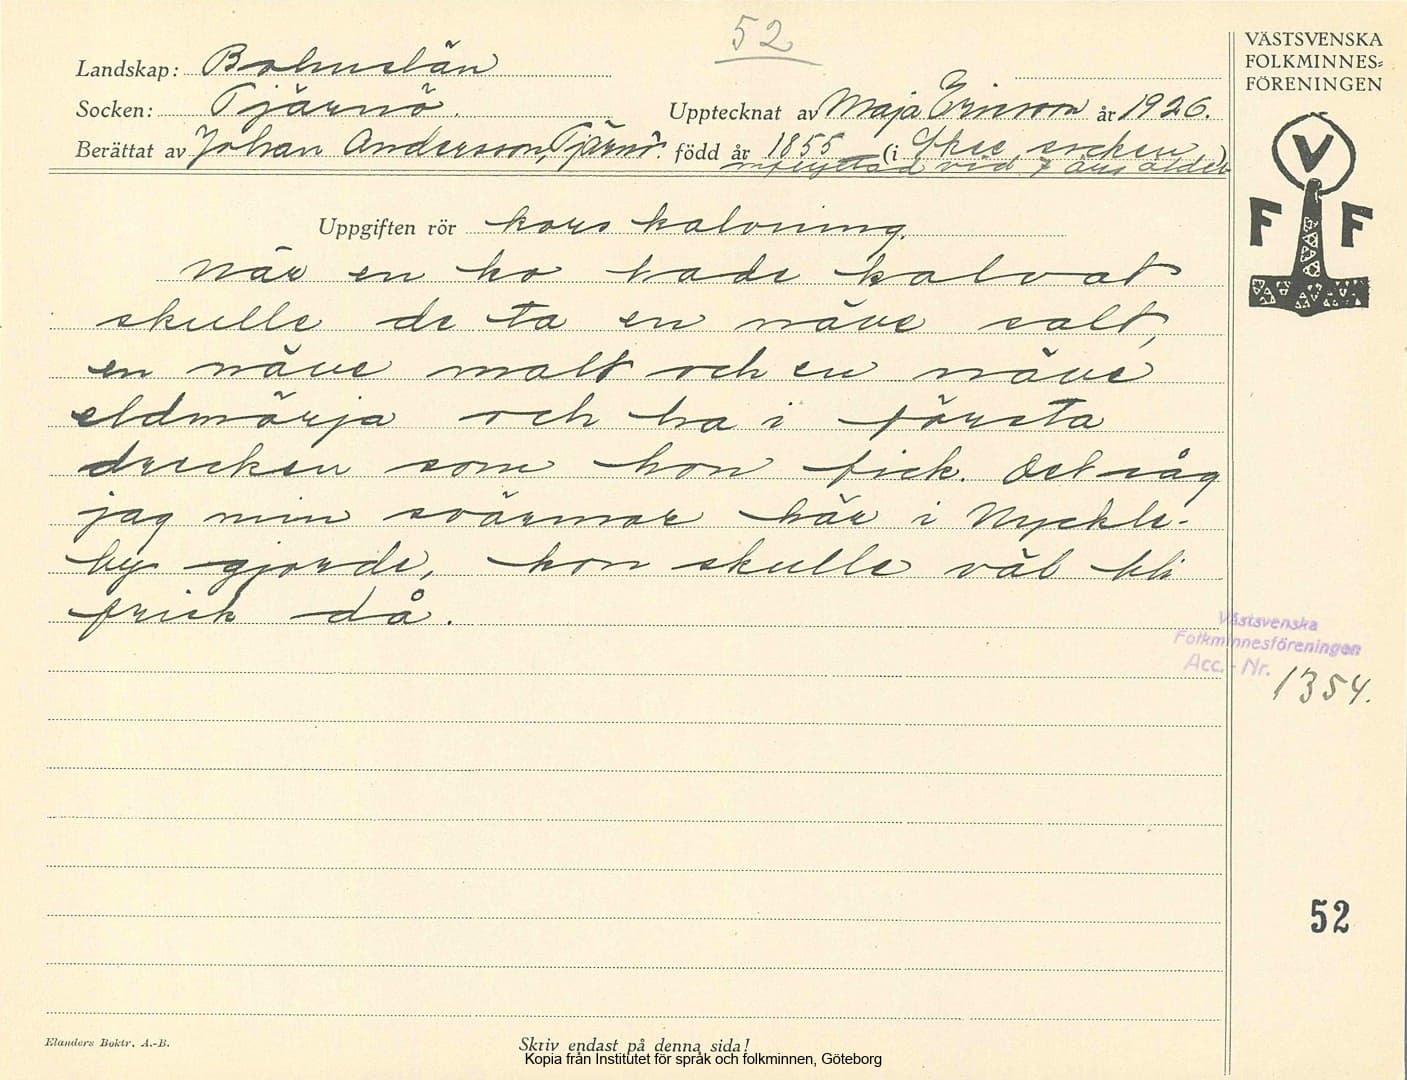 52
VÄSTSVENSKA
FOLKMINNES=
FÖRENINGEN
V
F F
Landskap: Bohuslän
Socken: Tjärnö. Upptecknat av Maja Ericson år 1926.
Berättat av Johan Andersson, Tjärnö. född år 1855 (i Skee socken)
inflyttad vid 7 års ålder
Uppgiften rör kors kalvning.
När en ko hade kalvat
skulle de ta en näve salt,
en näve malt och en näve
eldmörja och ha i första
drecken som hon fick. Det såg
jag min svärmor här i Myckle-
by gjorde, hon skulle väl bli
frisk då.
Västsvenska
Folkminnesföreningen
Acc. - Nr. 1354.
52
Elanders Boktr. A.-B.
Skriv endast på denna sida!
Kopia från Institutet för språk och folkminnen, Göteborg